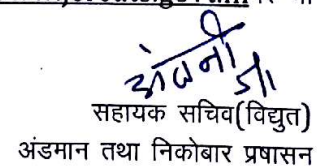 अंजनी झा
सहायक सचिव(विद्युत)
अंडमान तथा निकोबार प्रषासन